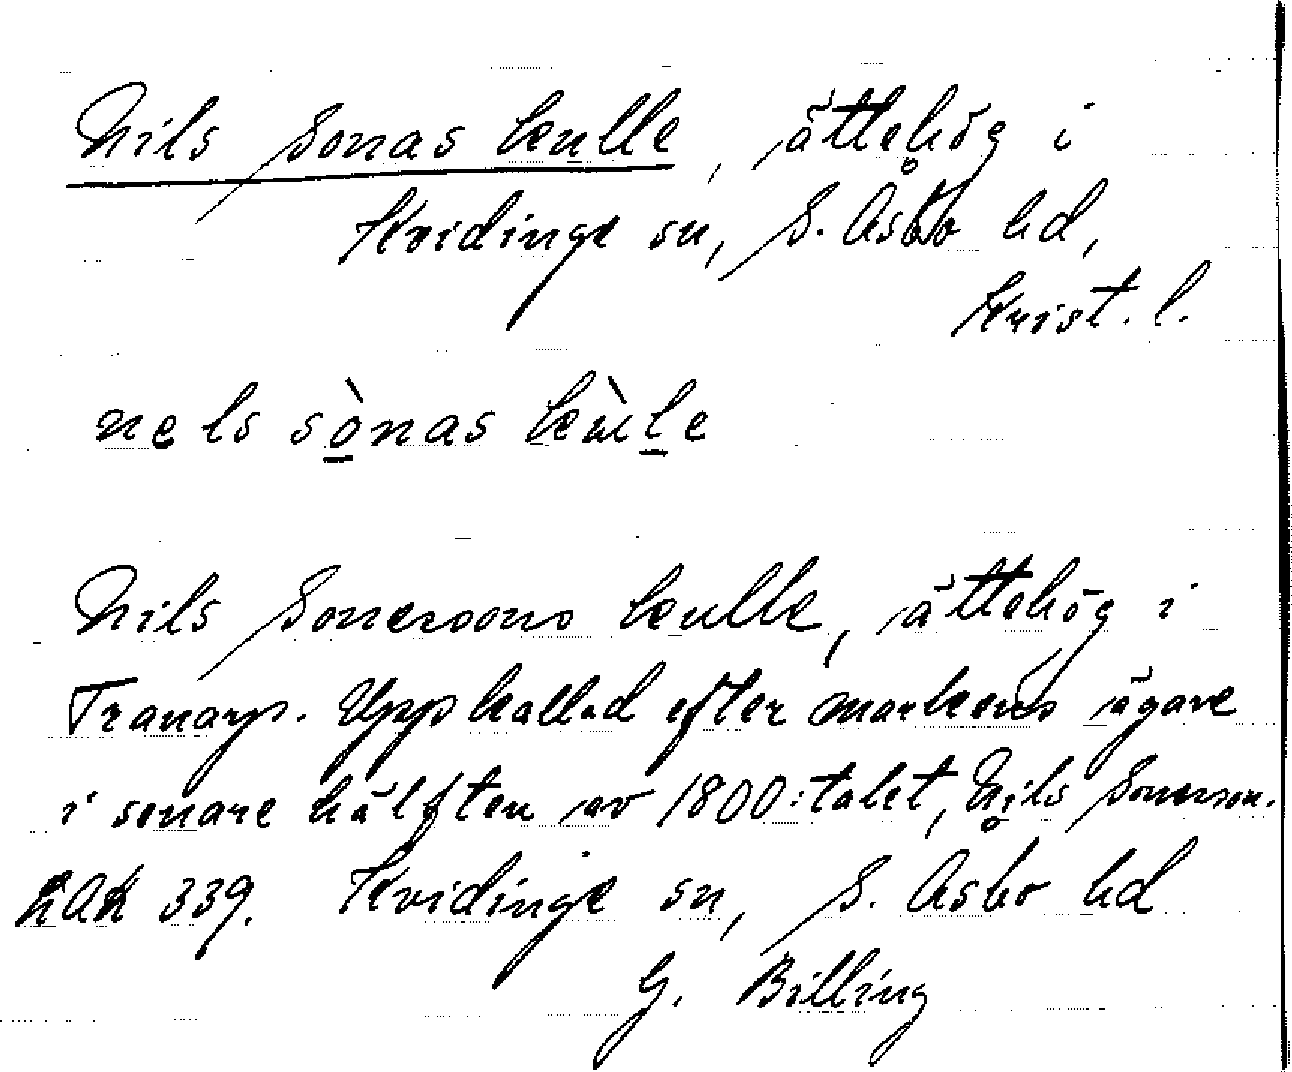 Nils Sonas kulle, ättehög i
Kvidinge sn, S. Åsbo hd,
Krist. l.
nels sònas kùle
Nils Sonessons kulle, ättehög i
Tranarp. Uppkallad efter markens ägare
i senare hälften av 1800-talet, Nils Sonesson.
LAK 339. Kvidinge sn, S. Åsbo hd
G. Billing